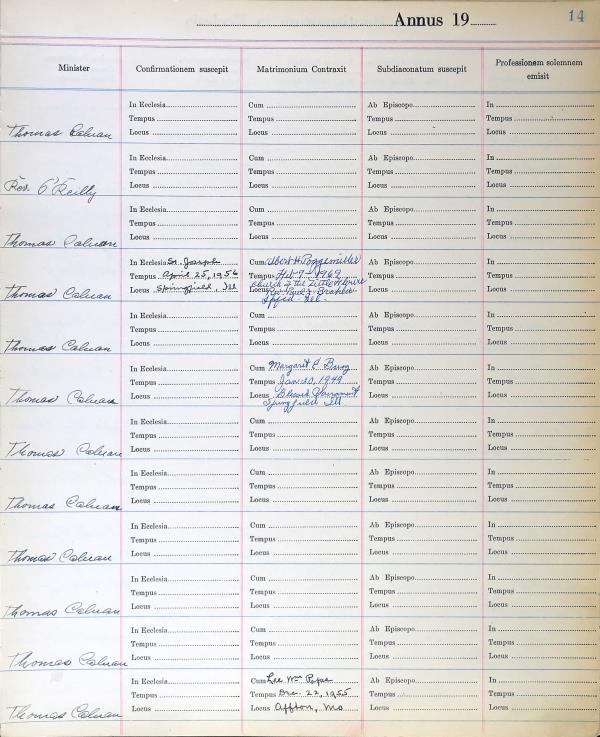 Annus 19
14
Minister
Confirmationem suscepit
Matrimonium Contraxit
Subdiaconatum suscepit
Professionem solemnem
emisit
In Ecclesia Cum Ab Episcopo In
Tempus Tempus Tempus Tempus
Thomas Locus Locus Locus Locus
In Ecclesia Cum Ab Episcopo In
Tempus Tempus Tempus Tempus
Rev. O'Reilly Locus Locus Locus Locus
In Ecclesia Cum Ab Episcopo In
Tempus Tempus Tempus Tempus
Thomas Locus Locus Locus Locus
In Ecclesia St. Joseph Cum Albert H. Poggemiller Ab Episcopo In
Tempus April 25, 1956 Tempus Feb 9 - 1969 Tempus Tempus
Thomas Locus Springfield, Ill Locus Church of the Little Flower Locus Locus
Rev. Paul
Spfld - Ill.
In Ecclesia Cum Ab Episcopo In
Tempus Tempus Tempus Tempus
Thomas Locus Locus Locus Locus
In Ecclesia Cum Margaret C Ab Episcopo In
Tempus Tempus Jan 30, 1949 Tempus Tempus
Thomas Locus Locus Blessed Sacrament Locus Locus
Springfield Ill
In Ecclesia Cum Ab Episcopo In
Tempus Tempus Tempus Tempus
Thomas Locus Locus Locus Locus
In Ecclesia Cum Ab Episcopo In
Tempus Tempus Tempus Tempus
Thomas Locus Locus Locus Locus
In Ecclesia Cum Ab Episcopo In
Tempus Tempus Tempus Tempus
Thomas Locus Locus Locus Locus
In Ecclesia Cum Ab Episcopo In
Tempus Tempus Tempus Tempus
Thomas Locus Locus Locus Locus
In Ecclesia Cum Ab Episcopo In
Tempus Tempus Tempus Tempus
Thomas Locus Locus Locus Locus
In Ecclesia Cum Lee Wm Pape Ab Episcopo In
Tempus Tempus Dec. 22, 1955 Tempus Tempus
Thomas Locus Locus Affton, Mo Locus Locus